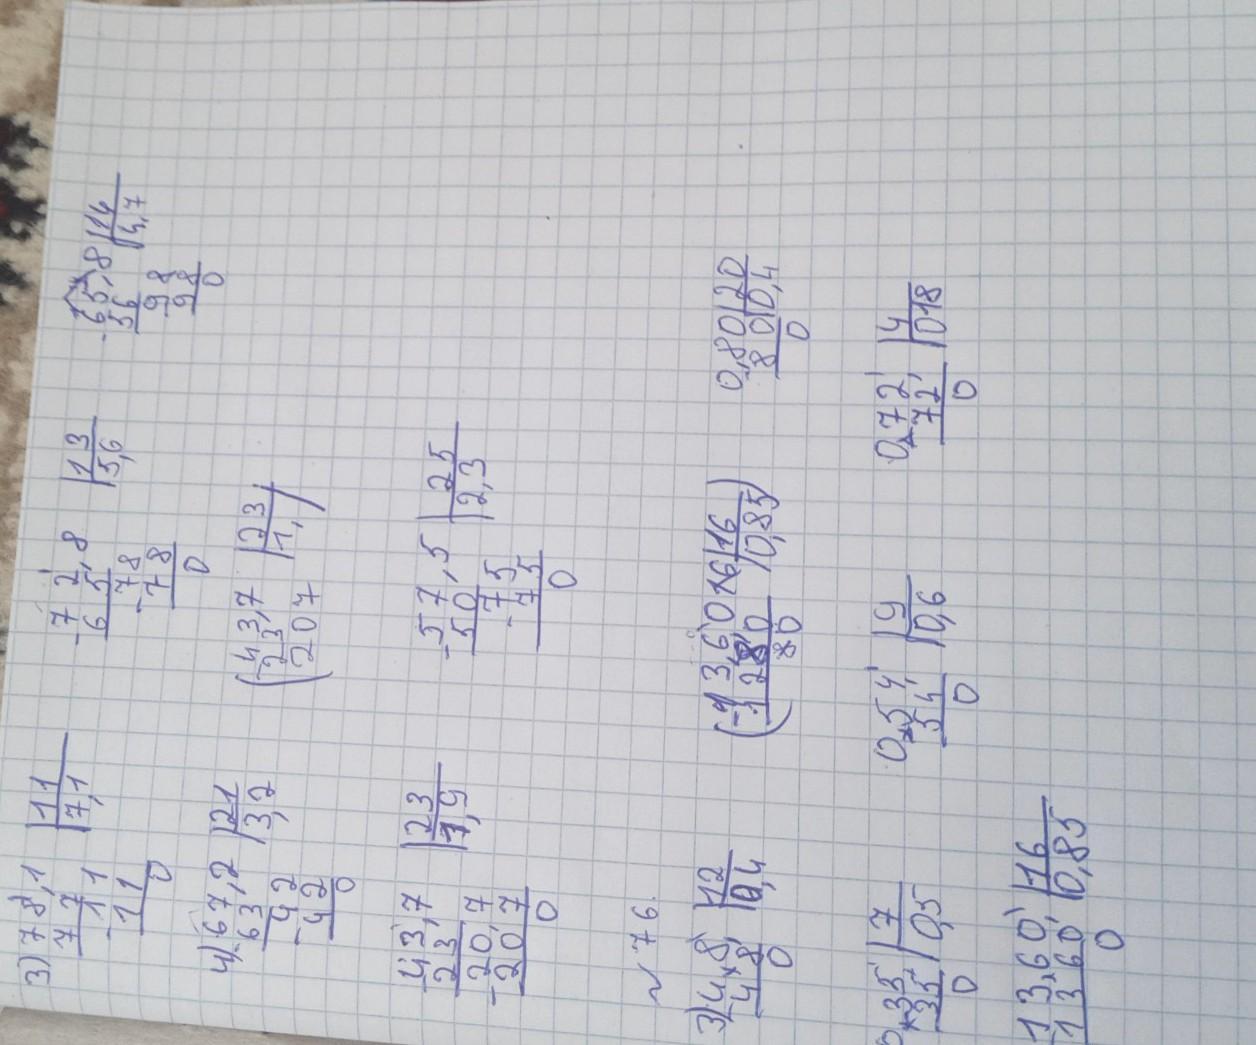 3) 78,1 | 11
77 | 7,1
- 11
11
0
- 72,8 | 13
65 | 5,6
- 78
78
0
- 65,8 | 14
56 | 4,7
98
98
0
4) - 67,2 | 21
63 | 3,2
- 42
42
0
( 43,7 | 23
23 | 1, )
207
- 43,7 | 23
23 | 1,9
- 20,7
20,7
0
- 57,5 | 25
50 | 2,3
- 75
75
0
~ 76.
3) 4,8 | 12
48 | 0,4
0
( - 13,60 16 | 16
128 0 | 0,85 )
80
0,80 | 20
80 | 0,4
0
0,35 | 7
35 | 0,5
0
0,54 | 9
54 | 0,6
0
0,72 | 4
72 | 018
0
13,60 | 16
1360 | 0,85
0